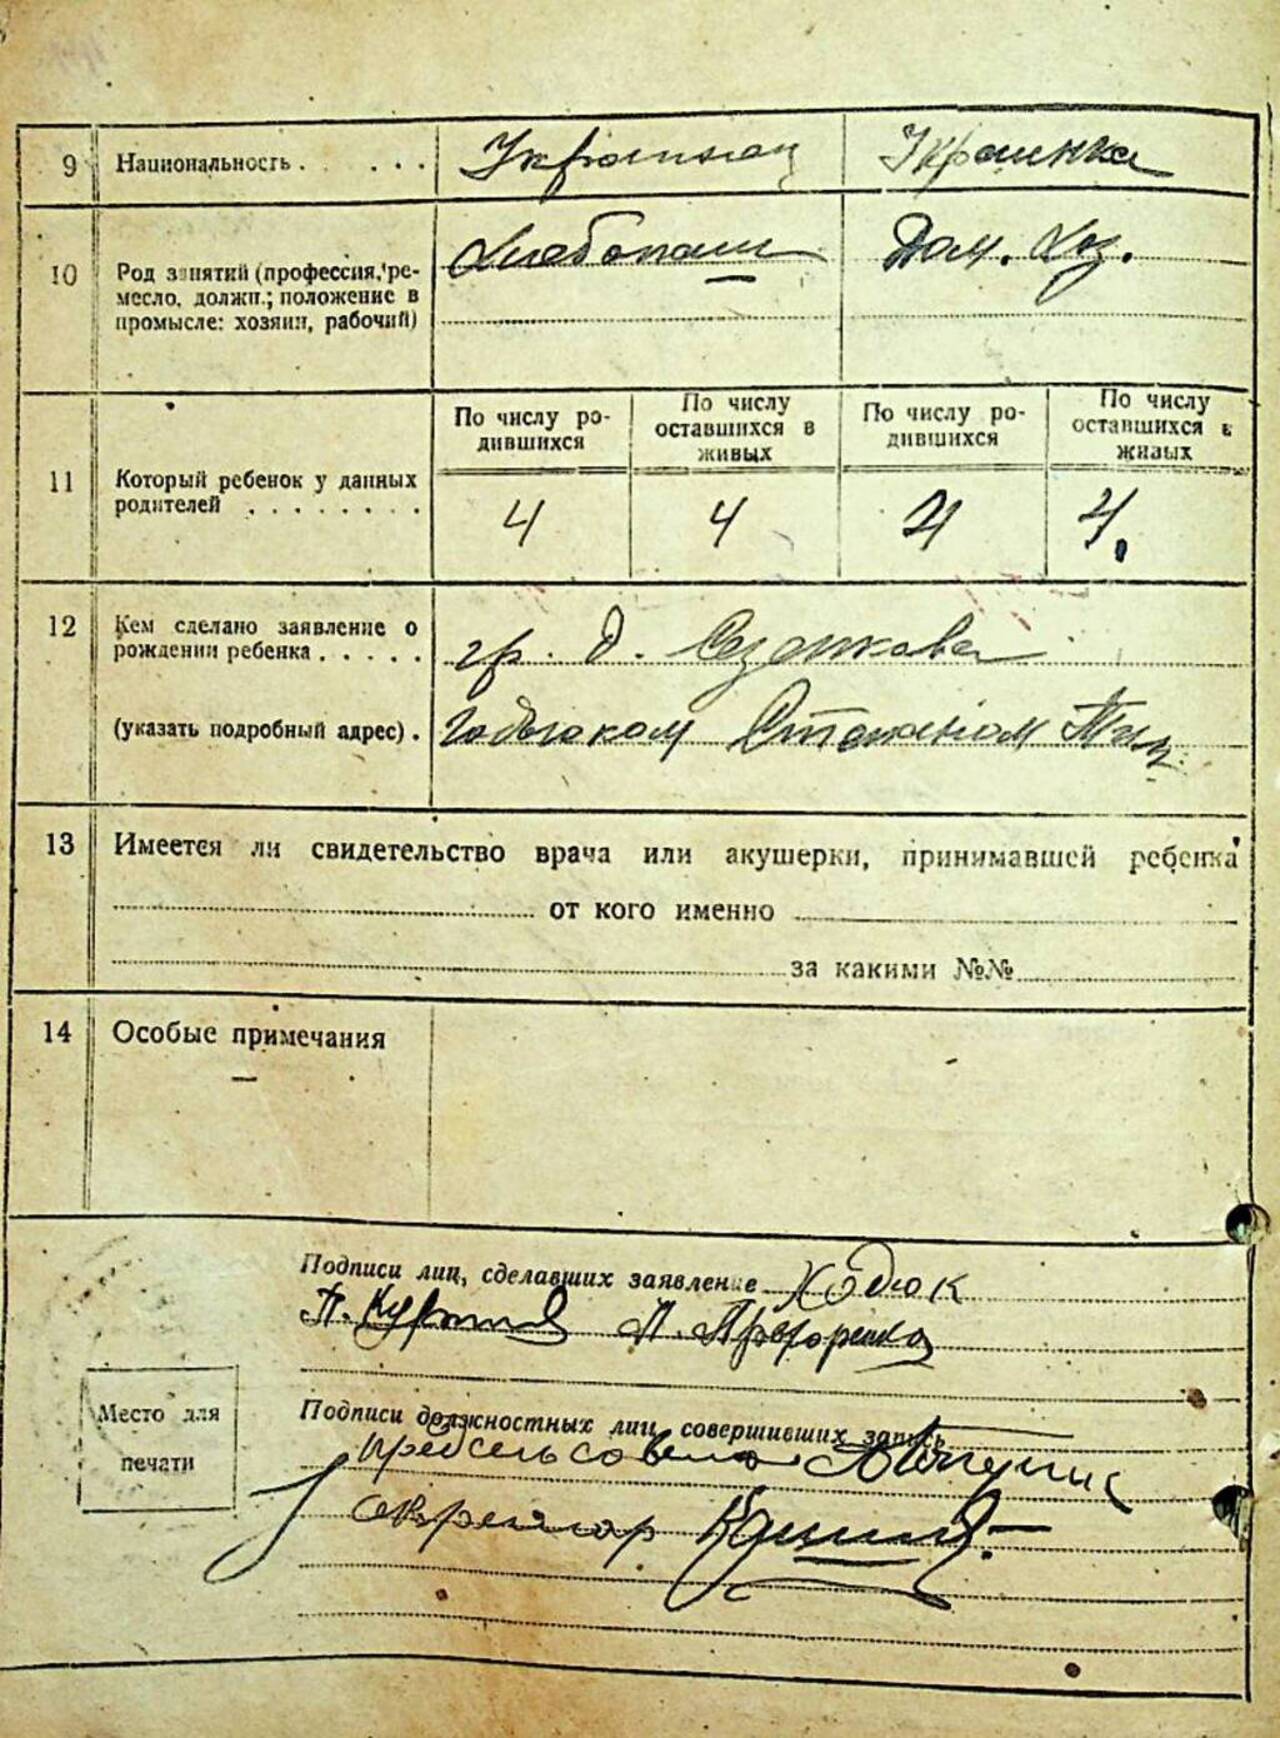 9 Национальность . . . . . . Украинец Украинка
10 Род занятий (профессия, ре- Хлебопаш Дом. Хоз.
месло, должн.; положение в
промысле: хозяин, рабочий)
11 Который ребенок у данных
родителей . . . . . . . .
По числу ро-
дившихся
По числу
оставшихся в
живых
По числу ро-
дившихся
По числу
оставшихся в
живых
4 4 4 4.
12 Кем сделано заявление о
рождении ребенка . . . . . гр. д.
(указать подробный адрес) . Степаном
13 Имеется ли свидетельство врача или акушерки, принимавшей ребенка
от кого именно
за какими №№
14 Особые примечания
—
Подписи лиц, сделавших заявление Ходюк
П. М.
Место для
печати
Подписи должностных лиц, совершивших запись
Предсельсовета
Секретарь